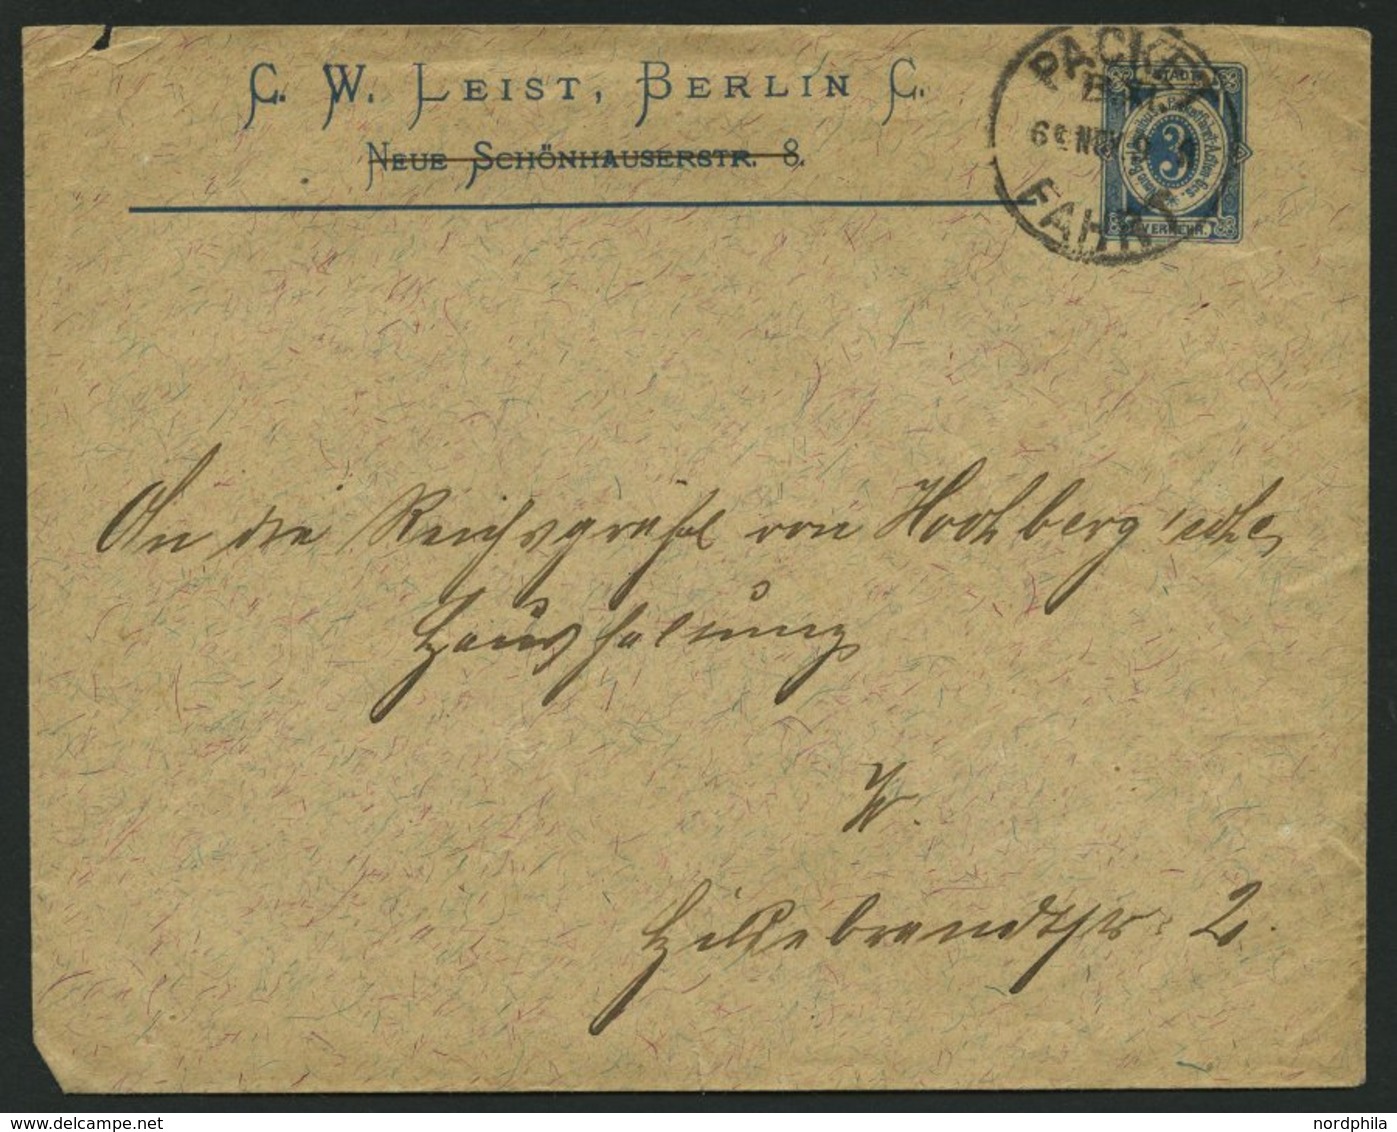 C. W. LEIST, BERLIN C.
NEUE SCHÖNHAUSERSTR. 8.
PACKET
FAHRT
NOV
STADT
3
VERKEHR.
An die Reichsgräfl von Hochberg'sche
Haushaltung
W.
Hildebrandtstr. 2.
nordphila